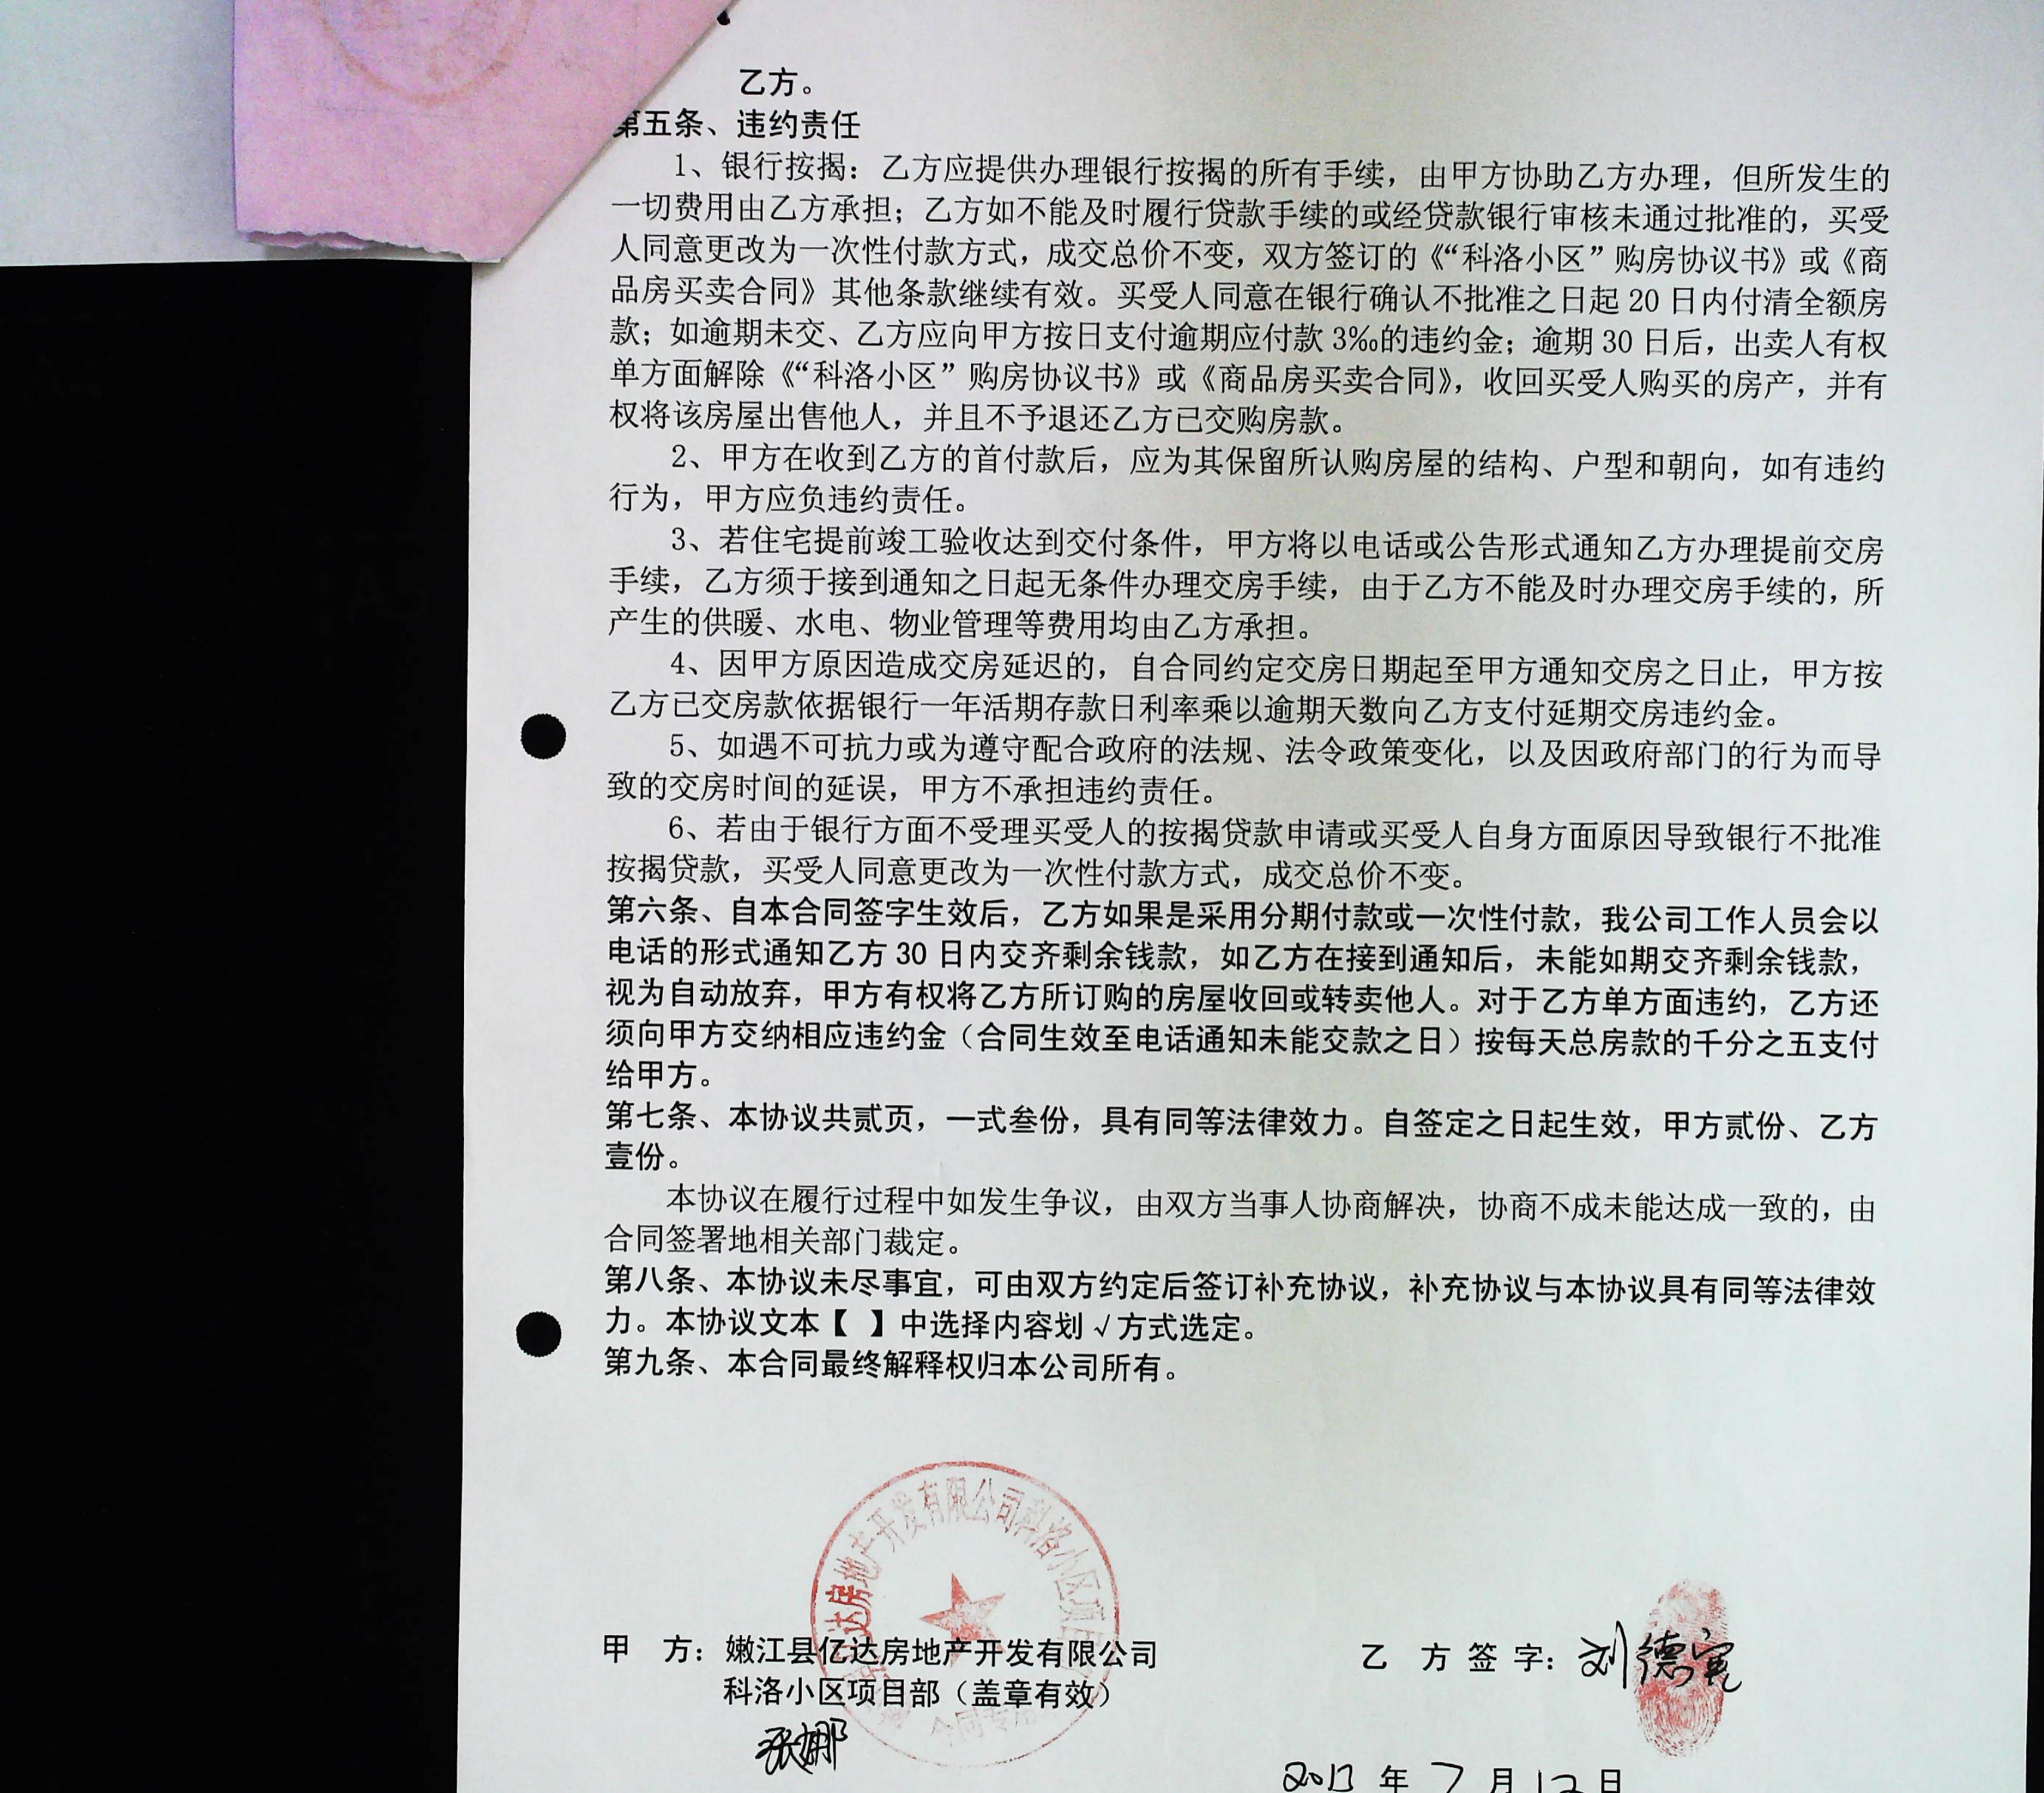 乙方。
第五条、违约责任
1、银行按揭：乙方应提供办理银行按揭的所有手续，由甲方协助乙方办理，但所发生的
一切费用由乙方承担；乙方如不能及时履行贷款手续的或经贷款银行审核未通过批准的，买受
人同意更改为一次性付款方式，成交总价不变，双方签订的《“科洛小区”购房协议书》或《商
品房买卖合同》其他条款继续有效。买受人同意在银行确认不批准之日起 20 日内付清全额房
款；如逾期未交、乙方应向甲方按日支付逾期应付款 3‰的违约金；逾期 30 日后，出卖人有权
单方面解除《“科洛小区”购房协议书》或《商品房买卖合同》，收回买受人购买的房产，并有
权将该房屋出售他人，并且不予退还乙方已交购房款。
2、甲方在收到乙方的首付款后，应为其保留所认购房屋的结构、户型和朝向，如有违约
行为，甲方应负违约责任。
3、若住宅提前竣工验收达到交付条件，甲方将以电话或公告形式通知乙方办理提前交房
手续，乙方须于接到通知之日起无条件办理交房手续，由于乙方不能及时办理交房手续的，所
产生的供暖、水电、物业管理等费用均由乙方承担。
4、因甲方原因造成交房延迟的，自合同约定交房日期起至甲方通知交房之日止，甲方按
乙方已交房款依据银行一年活期存款日利率乘以逾期天数向乙方支付延期交房违约金。
5、如遇不可抗力或为遵守配合政府的法规、法令政策变化，以及因政府部门的行为而导
致的交房时间的延误，甲方不承担违约责任。
6、若由于银行方面不受理买受人的按揭贷款申请或买受人自身方面原因导致银行不批准
按揭贷款，买受人同意更改为一次性付款方式，成交总价不变。
第六条、自本合同签字生效后，乙方如果是采用分期付款或一次性付款，我公司工作人员会以
电话的形式通知乙方 30 日内交齐剩余钱款，如乙方在接到通知后，未能如期交齐剩余钱款，
视为自动放弃，甲方有权将乙方所订购的房屋收回或转卖他人。对于乙方单方面违约，乙方还
须向甲方交纳相应违约金（合同生效至电话通知未能交款之日）按每天总房款的千分之五支付
给甲方。
第七条、本协议共贰页，一式叁份，具有同等法律效力。自签定之日起生效，甲方贰份、乙方
壹份。
本协议在履行过程中如发生争议，由双方当事人协商解决，协商不成未能达成一致的，由
合同签署地相关部门裁定。
第八条、本协议未尽事宜，可由双方约定后签订补充协议，补充协议与本协议具有同等法律效
力。本协议文本【 】中选择内容划√方式选定。
第九条、本合同最终解释权归本公司所有。
达房地产开发有限公司科洛小区项
合同专用
甲 方：嫩江县亿达房地产开发有限公司
科洛小区项目部（盖章有效）
张娜
乙 方 签 字：刘德
2013 年 7 月 12 日